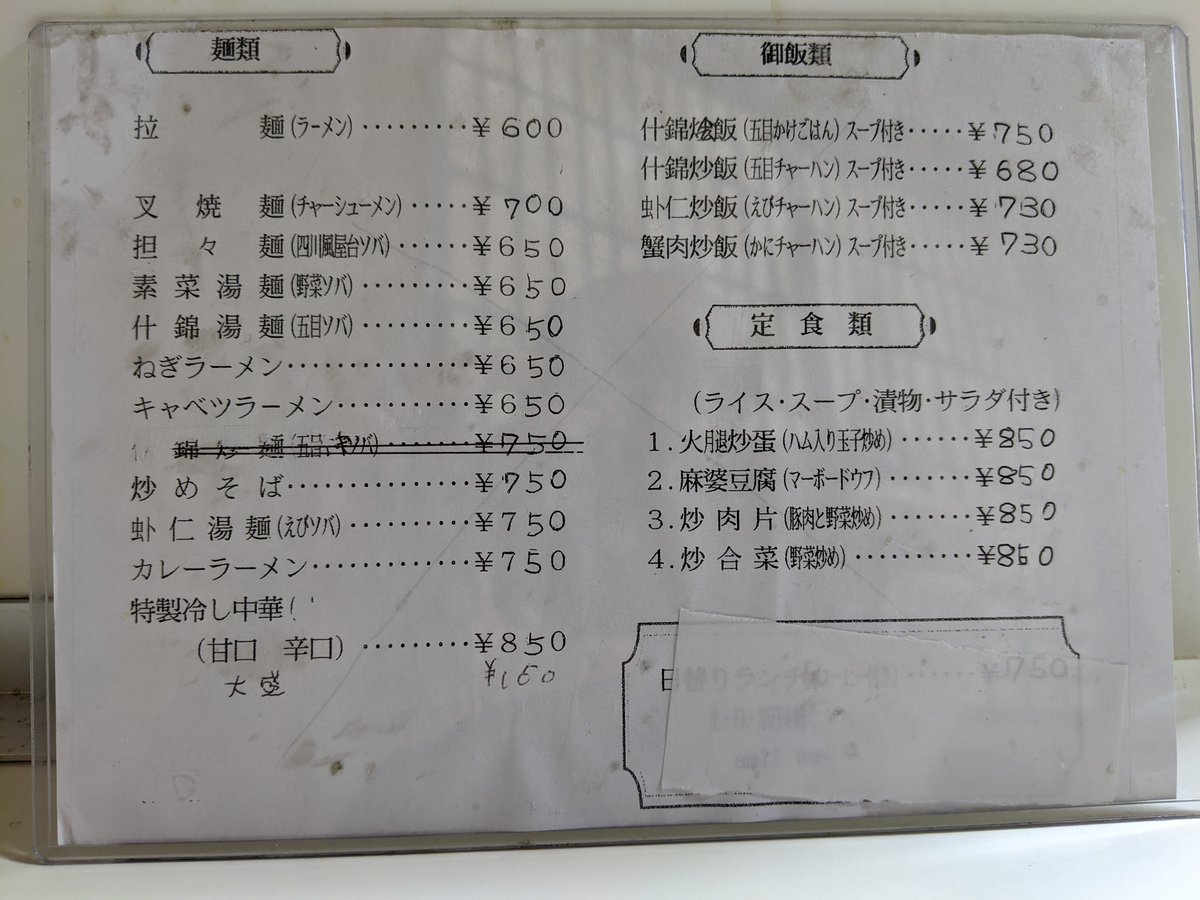 麺類
拉麺(ラーメン)·········¥600
叉焼麺(チャーシューメン)·····¥700
担々麺(四川風屋台ソバ)······¥650
素菜湯麺(野菜ソバ)·········¥650
什錦湯麺(五目ソバ)·········¥650
ねぎラーメン···············¥650
キャベツラーメン···········¥650
錦炒麺(五目ヤキソバ)·········¥750
炒めそば···············¥750
虾仁湯麺(えびソバ)··········¥750
カレーラーメン·············¥750
特製冷し中華(
(甘口 辛口)·········¥850
大盛 ¥150
御飯類
什錦烩飯(五目かけごはん)スープ付き·····¥750
什錦炒飯(五目チャーハン)スープ付き·····¥680
虾仁炒飯(えびチャーハン)スープ付き·····¥730
蟹肉炒飯(かにチャーハン)スープ付き·····¥730
定食類
(ライス·スープ·漬物·サラダ付き)
1.火腿炒蛋(ハム入り玉子炒め)······¥850
2.麻婆豆腐(マーボードウフ)·······¥850
3.炒肉片(豚肉と野菜炒め)·······¥850
4.炒合菜(野菜炒め)··········¥850
日替りランチ ······¥750